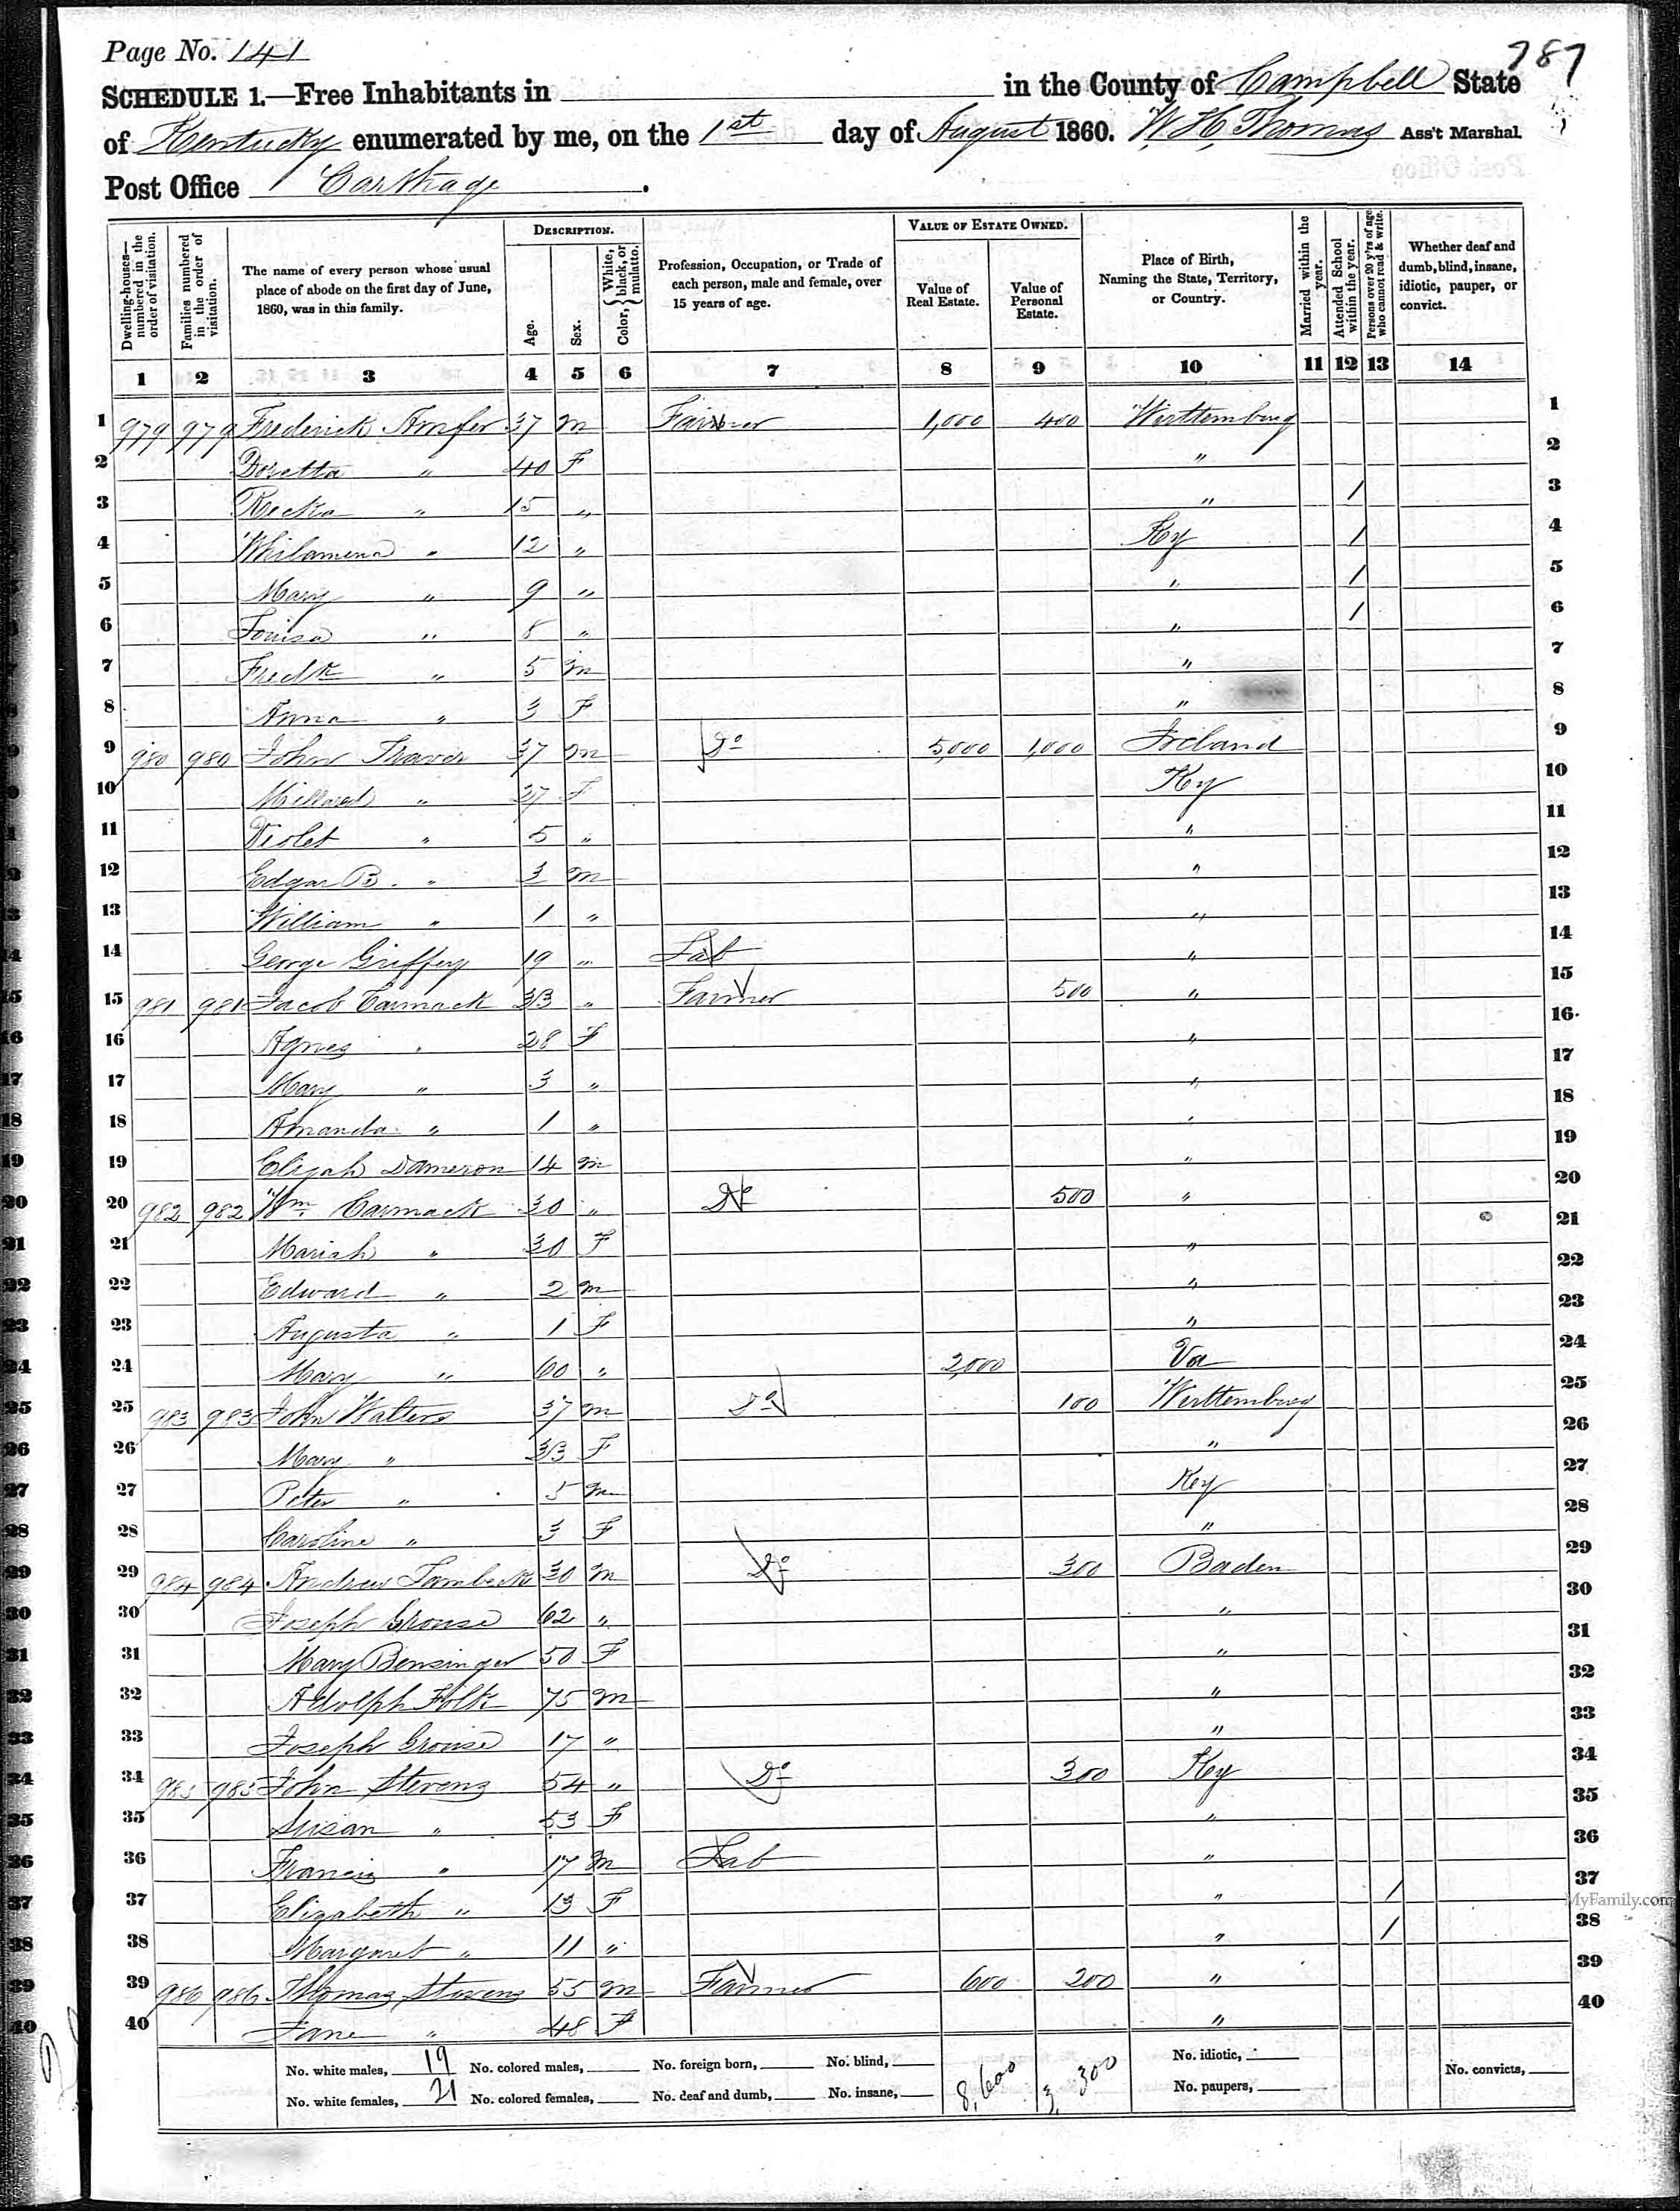 Page No. 141
787
SCHEDULE 1.—Free Inhabitants in in the County of Campbell State
of Kentucky enumerated by me, on the 1st day of August 1860. W. H. Thomas Ass't Marshal.
Post Office Carthage.
Dwelling-houses—numbered in the order of visitation.
Families numbered in the order of visitation.
The name of every person whose usual place of abode on the first day of June, 1860, was in this family.
DESCRIPTION.
Age.
Sex.
Color, { White, black, or mulatto.
Profession, Occupation, or Trade of each person, male and female, over 15 years of age.
VALUE OF ESTATE OWNED.
Value of Real Estate.
Value of Personal Estate.
Place of Birth, Naming the State, Territory, or Country.
Married within the year.
Attended School within the year.
Persons over 20 y'rs of age who cannot read & write.
Whether deaf and dumb, blind, insane, idiotic, pauper, or convict.
1 2 3 4 5 6 7 8 9 10 11 12 13 14
1 979 979 Frederick 37 M Farmer 1,000 400 Wirttemburg 1
2 Dosetta " 40 F " 2
3 Recka " 15 " " / 3
4 Whilamena " 12 " Ky / 4
5 Mary " 9 " " / 5
6 Louisa " 8 " " / 6
7 Fredk " 5 M " 7
8 Anna " 3 F " 8
9 980 980 John Travis 37 M Do 5,000 1,000 Ireland 9
10 " 27 F Ky 10
11 Violet " 5 " " 11
12 Edgar B. " 3 M " 12
13 William " 1 " " 13
14 George Griffey 19 " Lab " 14
15 981 981 Jacob Carmack 33 " Farmer 500 " 15
16 Agnes " 28 F " 16
17 Mary " 3 " " 17
18 Amanda " 1 " " 18
19 Elijah Dameron 14 M " 19
20 982 982 Wm. Carmack 30 " Do 500 " 20
21 Mariah " 30 F " 21
22 Edward " 2 M " 22
23 Augusta " 1 F " 23
24 Mary " 60 " 2,000 Va 24
25 983 983 John Walters 37 M Do 100 Wirttemburg 25
26 Mary " 33 F " 26
27 Peter " 5 M Key 27
28 Caroline " 3 F " 28
29 984 984 Andrew 30 M Do 300 Baden 29
30 Joseph Grouse 62 " " 30
31 Mary Bensinger 50 F " 31
32 Adolph Folk 75 M " 32
33 Joseph Grouse 17 " " 33
34 985 985 John Stevens 54 " Do 300 Key 34
35 Susan " 53 F " 35
36 Francis " 17 M Lab " 36
37 Elizabeth " 13 F " / 37
38 Margaret " 11 " " / 38
39 986 986 Thomas Stevens 55 M Farmer 600 200 " 39
40 Jane " 48 F " 40
No. white males, 19 No. colored males, No. foreign born, No. blind, 8,600 3,300 No. idiotic, No. convicts,
No. white females, 21 No. colored females, No. deaf and dumb, No. insane, No. paupers,
MyFamily.com